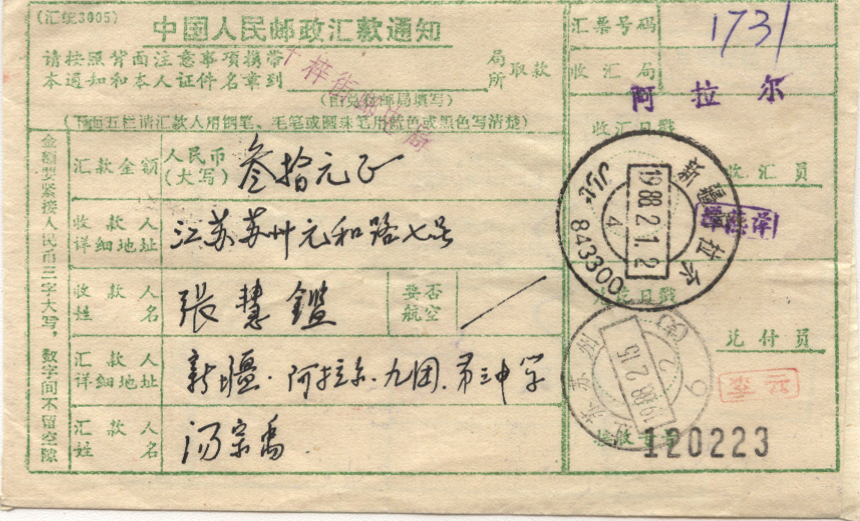 (汇统3005)
中国人民邮政汇款通知
请按照背面注意事项携带
本通知和本人证件名章到
局
所
取款
(由兑付邮局填写)
(下面五栏请汇款人用钢笔、毛笔或圆珠笔用蓝色或黑色写清楚)
金额要紧接人民币三字大写，数字间不留空隙
汇款金额
人民币
(大写)
叁拾元正
收款人
详细地址
江苏苏州元和路七号
收款人
姓名
張慧鑑
要否
航空
汇款人
详细地址
新疆·阿拉尔·九团·第三中学
汇款人
姓名
汤宗禹
汇票号码
1731
收汇局
阿拉尔
收汇日戳
新疆
拉尔
1988.2.1.2
4
843300
收汇员
兑付日戳
江苏苏州
1988.2.15
兑付员
李元
接收号码
120223